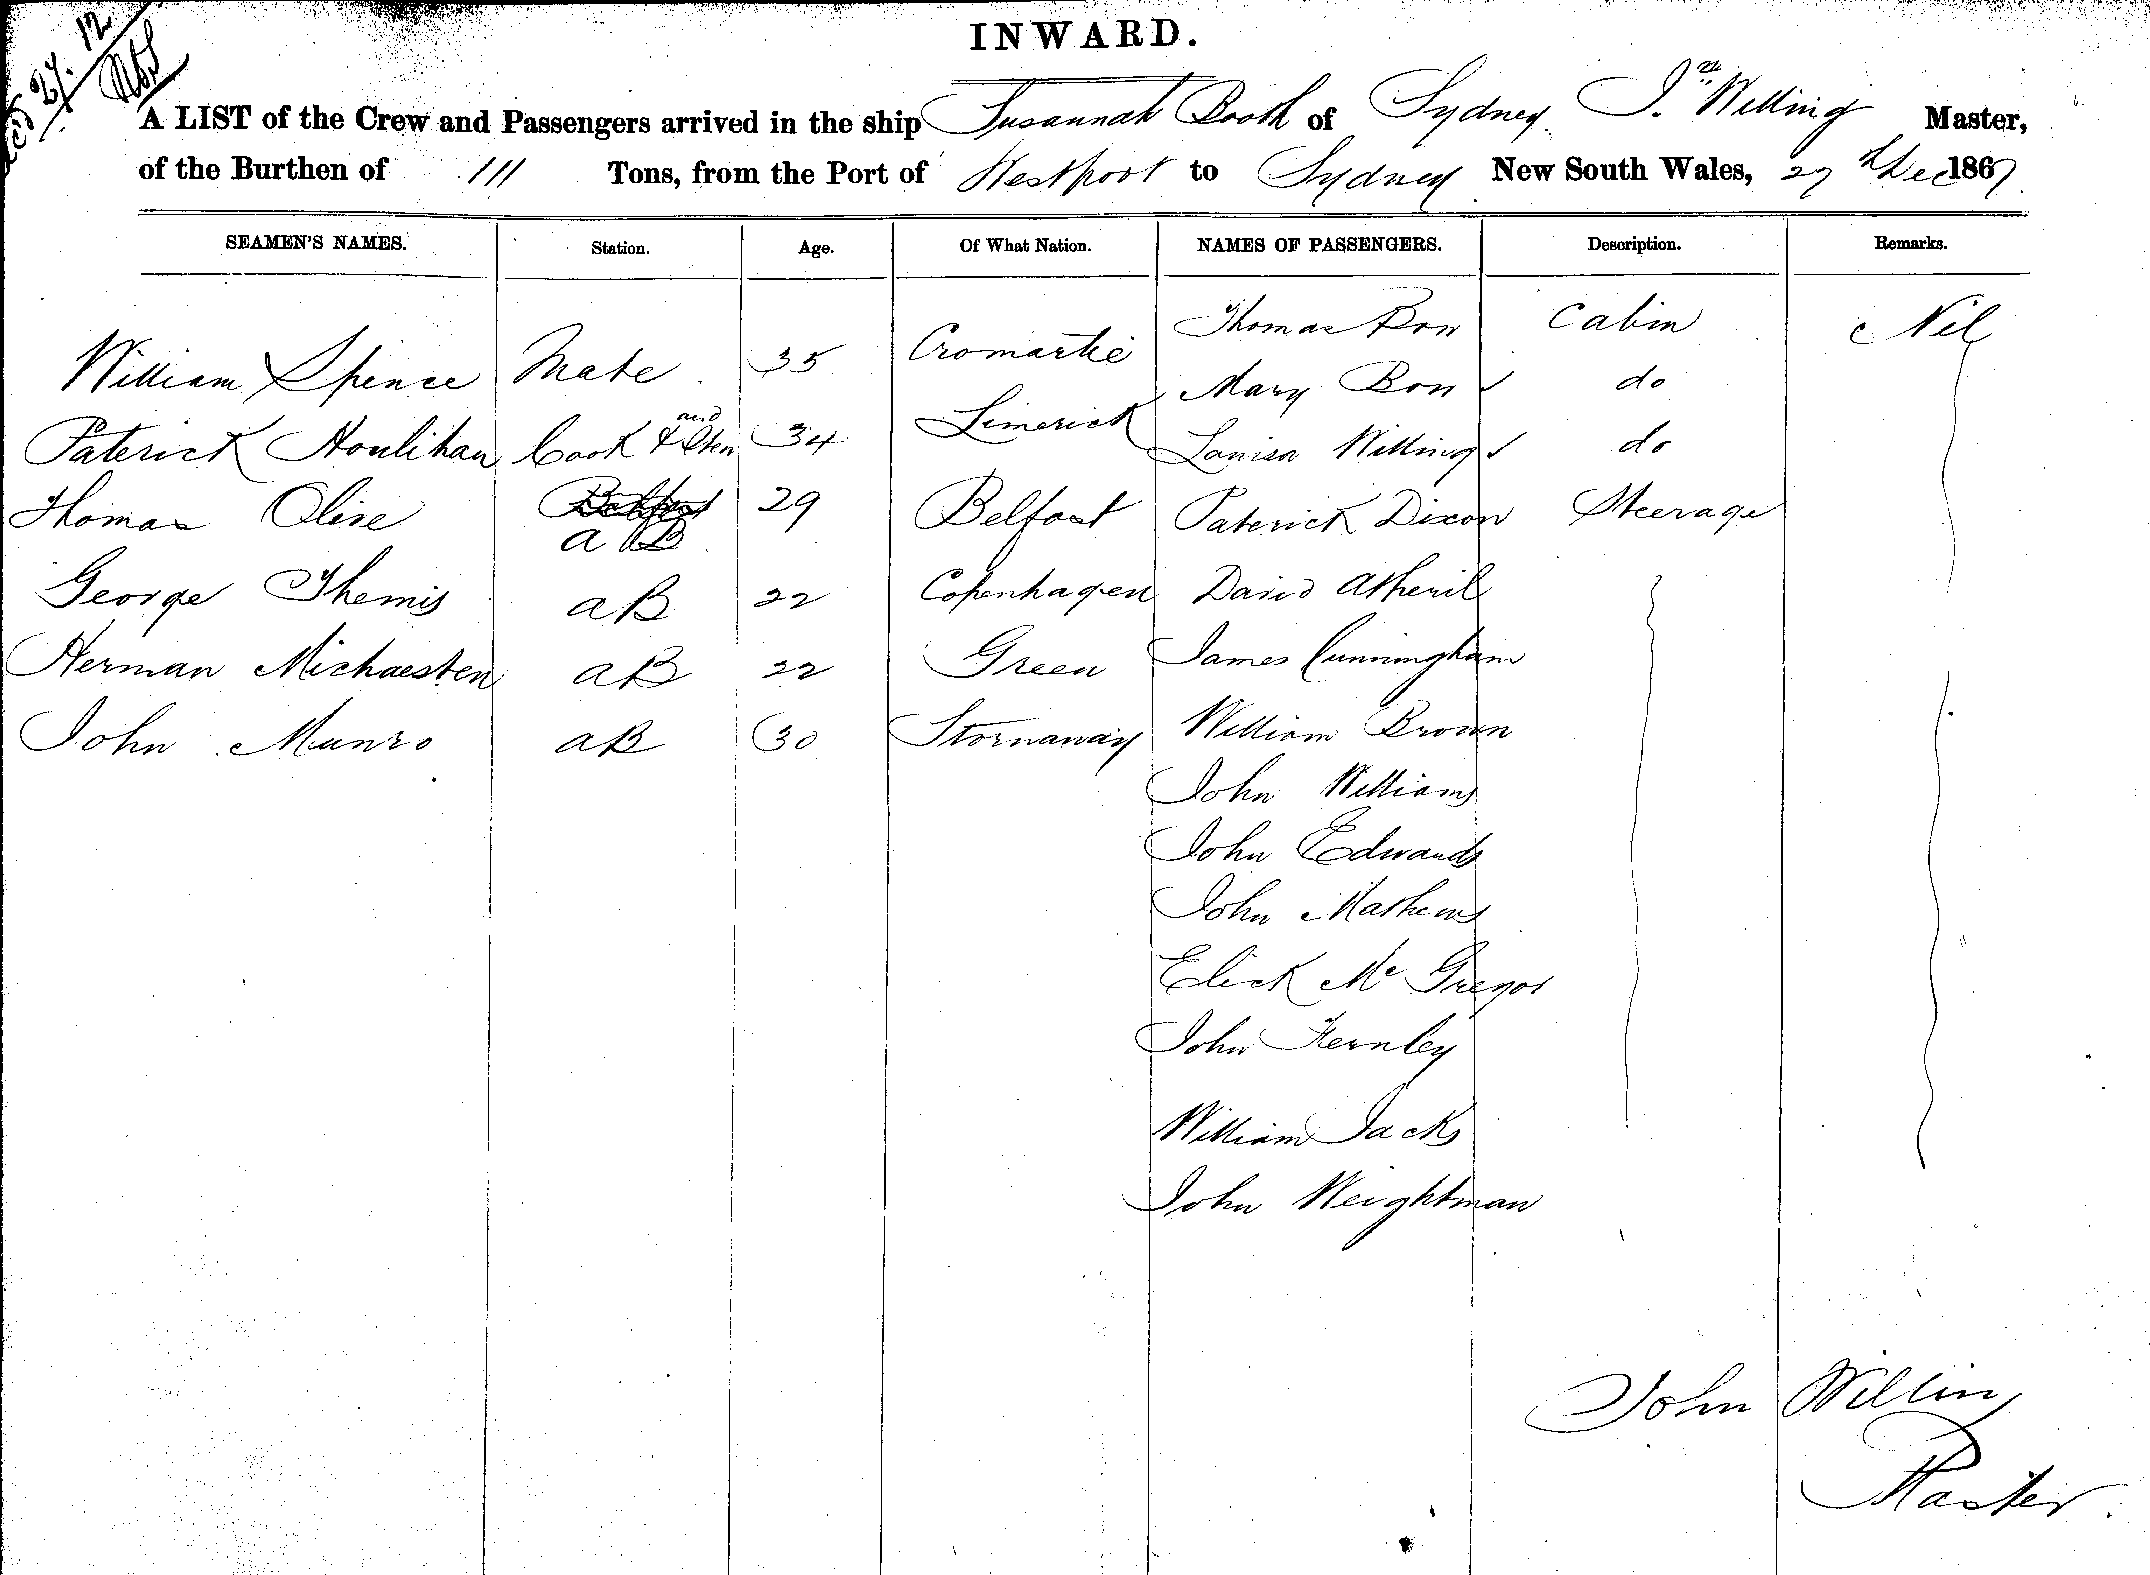 27.12
INWARD.
A LIST of the Crew and Passengers arrived in the ship Susannah Booth of Sydney Jn Willing Master,
of the Burthen of 111 Tons, from the Port of Westport to Sydney New South Wales, 27 Dec 1867
SEAMEN'S NAMES. Station. Age. Of What Nation. NAMES OF PASSENGERS. Description. Remarks.
William Spence Mate 35 Cromartie Thomas Bon Cabin Nil
Paterick Houlihan Cook & and Stew 34 Limerick Mary Bon do
Louisa Willing do
Thomas Olive a B 29 Belfast Paterick Dixon Steerage
George Themis aB 22 Copenhagen David Atheril
Herman Michaesten aB 22 Green James Cunningham
John Munro aB 30 Stornaway William Brown
John Williams
John Edwards
John Mathews
Elick Mc Gregor
John Fernley
William Jacks
John Weightman
John Willing
Master.